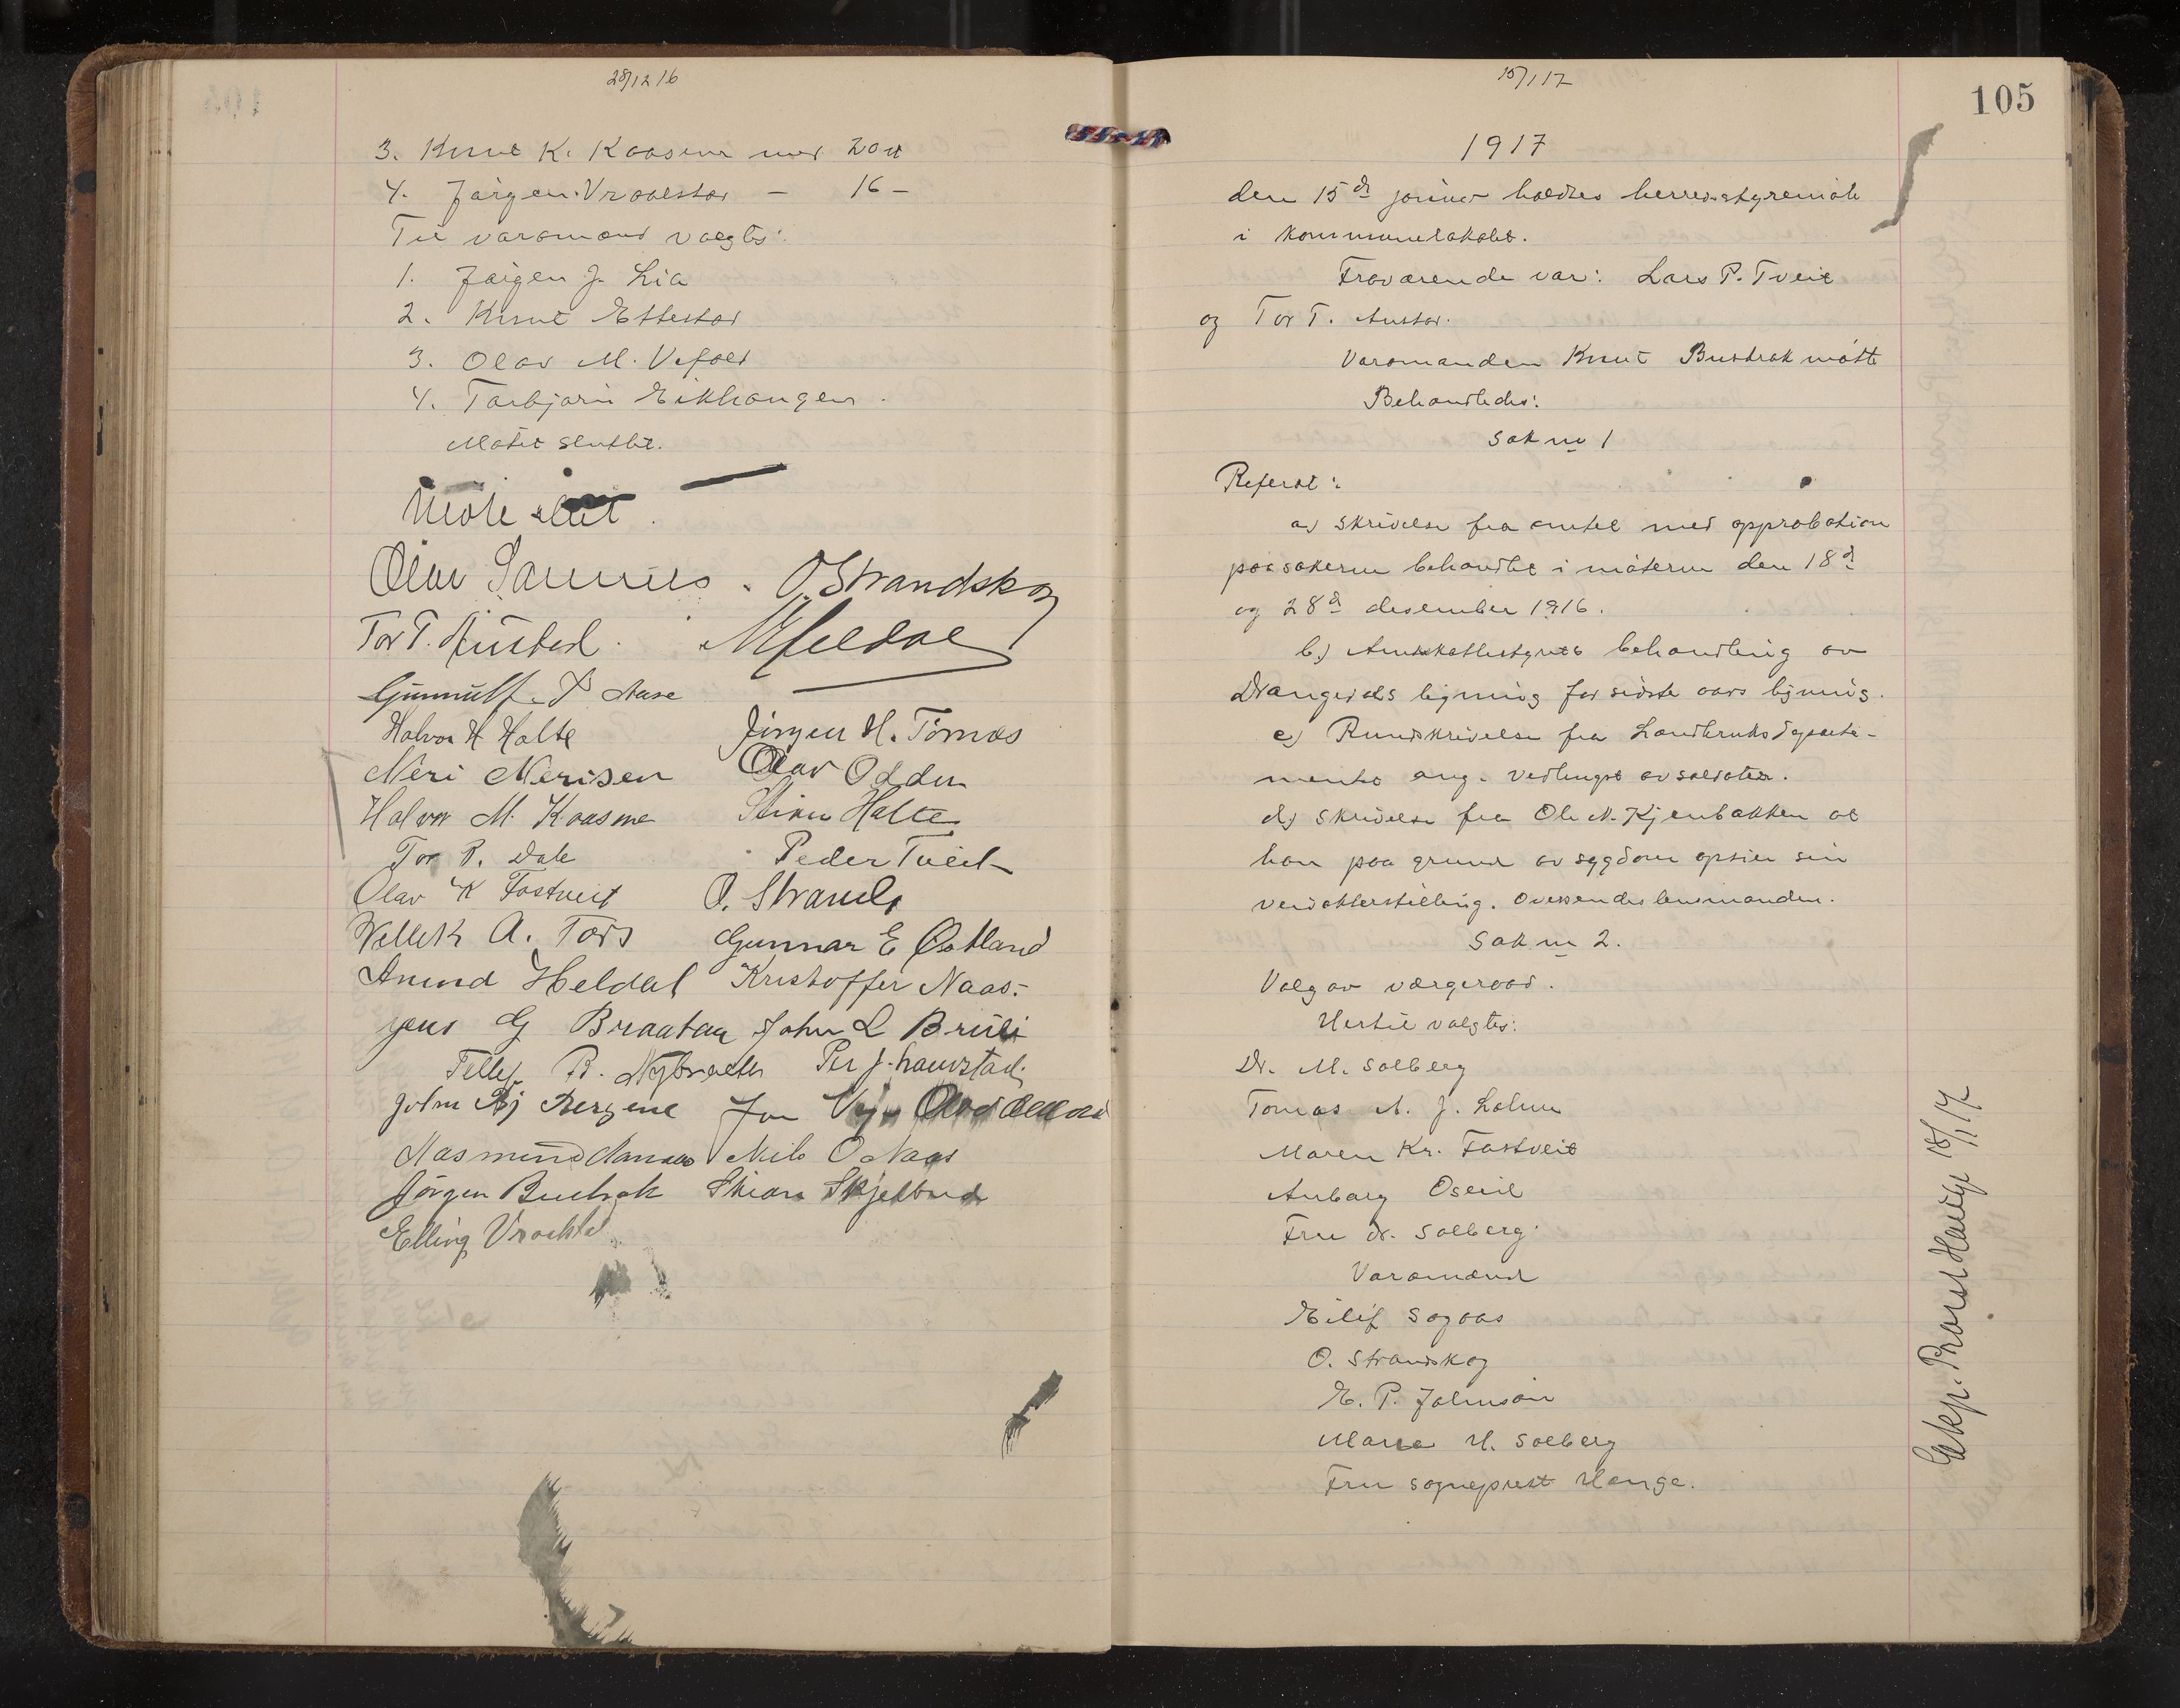 28/12 16
3. Knut K. Kaasene med 20 st
4. Jørgen Vraalstad — 16 —
Til varamænd valgtes:
1. Jørgen J. Lia
2. Knut Ettestad
3. Olav M. Vefald
4. Torbjørn Eikhaugen.
Møtet sluttet.
Møte slut.
Olav Sannes. O. Strandskog
Tor T. Austad.
Gunnulf T Aase
Halvor H Holte Jørgen H. Tørnes
Neri Nerisen Olav Odden
Halvor M. Kaasene Stian Holte
Tor P. Dale Peder Tveit
Olav K Fostveit O. Strand
Vellek A. Tors Gunnar E Østland
Anund Heldal Kristoffer Naas.
Jens G Braaten John L Brüli
Tellef R. Nybraaten Per J.
John Bj Bergene Jon
Rasmund Nils O Naas
Jørgen Bustrak Stian Skjelbred
Elling Vraalstad
15/1 17
105
1917
den 15de januar holdtes herredsstyremøte
i kommunelokalet.
Fraværende var: Lars P. Tveit
og Tor T. Austad.
Varamanden Knut Bustrak møtte
Behandledes:
Sak nr 1
Referat:
a) Skrivelse fra amtet med approbation
paa sakerne behandlet i møterne den 18de
og 28de desember 1916.
b.) Amtskattestyrets behandling av
Drangedals ligning for sidste aars ligning.
c) Rundskrivelse fra Landbruksdeparte-
mentet ang. vedhugst av soldater.
d) Skrivelse fra Ole N. Kjenbakken at
han paa grund av sygdom opsier sin
stilling. Oversendes lensmanden.
Sak nr 2.
Valg av værgeraad.
Hertil valgtes:
Dr. M. Solberg
Tomas A. J. Lohne
Maren Kr. Fostveit
Anborg Oseid
Fru dr. Solberg
Varamænd
Eilif Sagaas
O. Strandskog
E. P. Johnson
Maria H. Solberg
Fru sogneprest Hauge.
Eksp. Prost Hauge 18/1 17